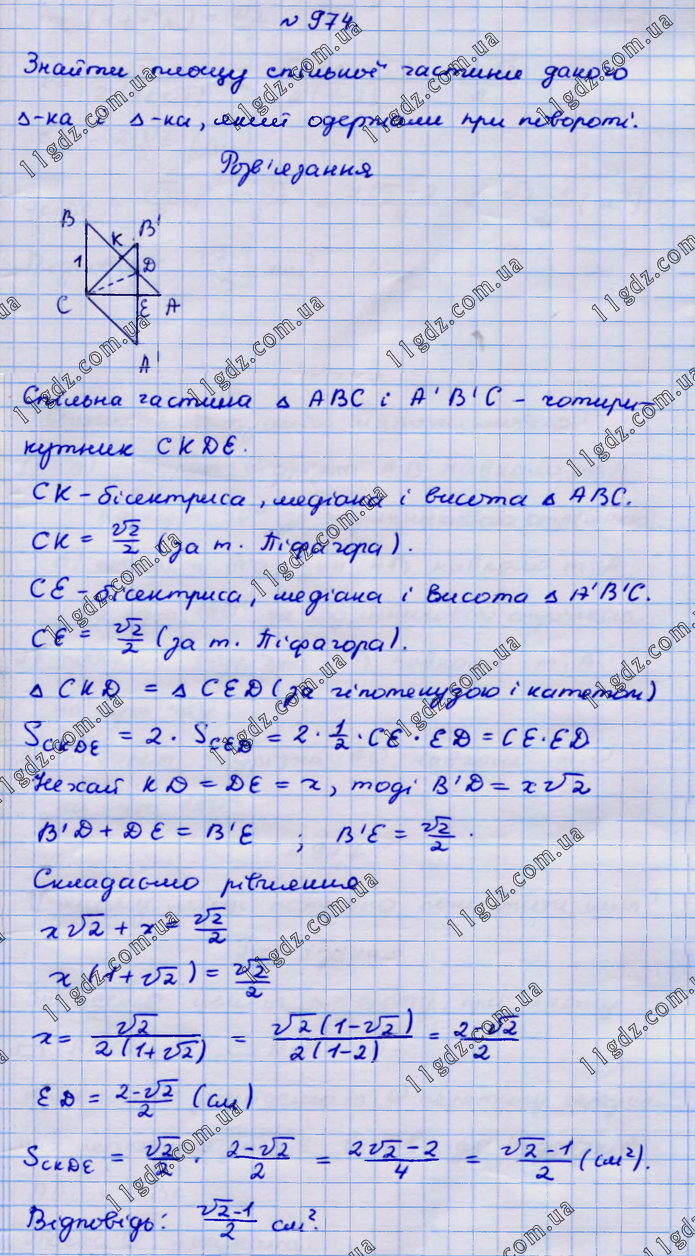 № 974
Знайти площу спільної частини даного
Δ-ка і Δ-ка, який одержали при повороті.
Розв'язання
B
B'
K
1
D
C
E
A
A'
Спільна частина Δ ABC і A'B'C - чотири-
кутник CKDE.
CK - бісектриса, медіана і висота Δ ABC.
CK = √2/2 (за т. Піфагора).
CE - бісектриса, медіана і висота Δ A'B'C.
CE = √2/2 (за т. Піфагора).
Δ CKD = Δ CED (за гіпотенузою і катетом)
S_CKDE = 2 · S_CED = 2 · 1/2 · CE · ED = CE · ED
Нехай KD = DE = x, тоді B'D = x√2
B'D + DE = B'E ; B'E = √2/2.
Складаємо рівняння
x√2 + x = √2/2
x (1+√2) = √2/2
x = √2/2(1+√2) = √2(1-√2)/2(1-2) = 2-√2/2
ED = 2-√2/2 (см)
S_CKDE = √2/2 · 2-√2/2 = 2√2-2/4 = √2-1/2 (см²).
Відповідь: √2-1/2 см².
11gdz.com.ua